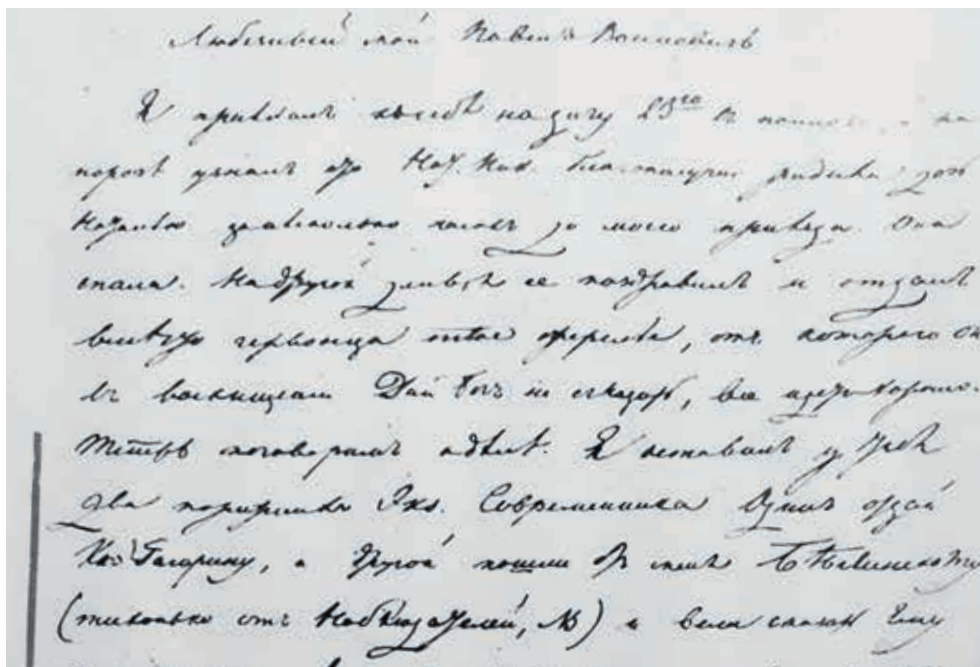 Любезный мой Павелъ Воиновичь
Я приѣхалъ къ себѣ на дачу 23го въ полночь, и на
порогѣ узналъ что Нат. Ник. благополучно родила дочь
Наталью за нѣсколько часовъ до моего приѣзда. Она
спала. На другой день я ее поздравилъ и отдалъ
вмѣсто червонца твое ожерелье, отъ котораго она
въ восхищеніи. Дай Богъ не сглазить, все идетъ хорошо.
Теперь поговоримъ о дѣлѣ. Я оставилъ у тебя
два порожнихъ Экз. Современника. Одинъ отдай
Кн. Гагарину, а другой пошли отъ меня Бѣлинскому
(тихонько отъ Наблюдателей, NB) и вели сказать ему